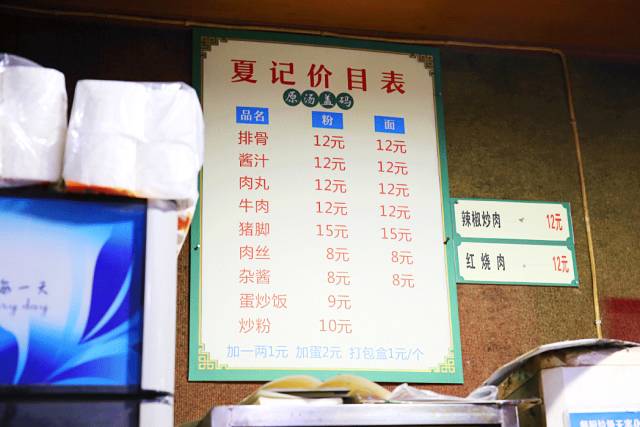 夏记价目表
原汤盖码
品名 粉 面
排骨 12元 12元
酱汁 12元 12元
肉丸 12元 12元
牛肉 12元 12元
猪脚 15元 15元
肉丝 8元 8元
杂酱 8元 8元
蛋炒饭 9元
炒粉 10元
加一两1元 加蛋2元 打包盒1元/个
辣椒炒肉 12元
红烧肉 12元
每一天
ery day